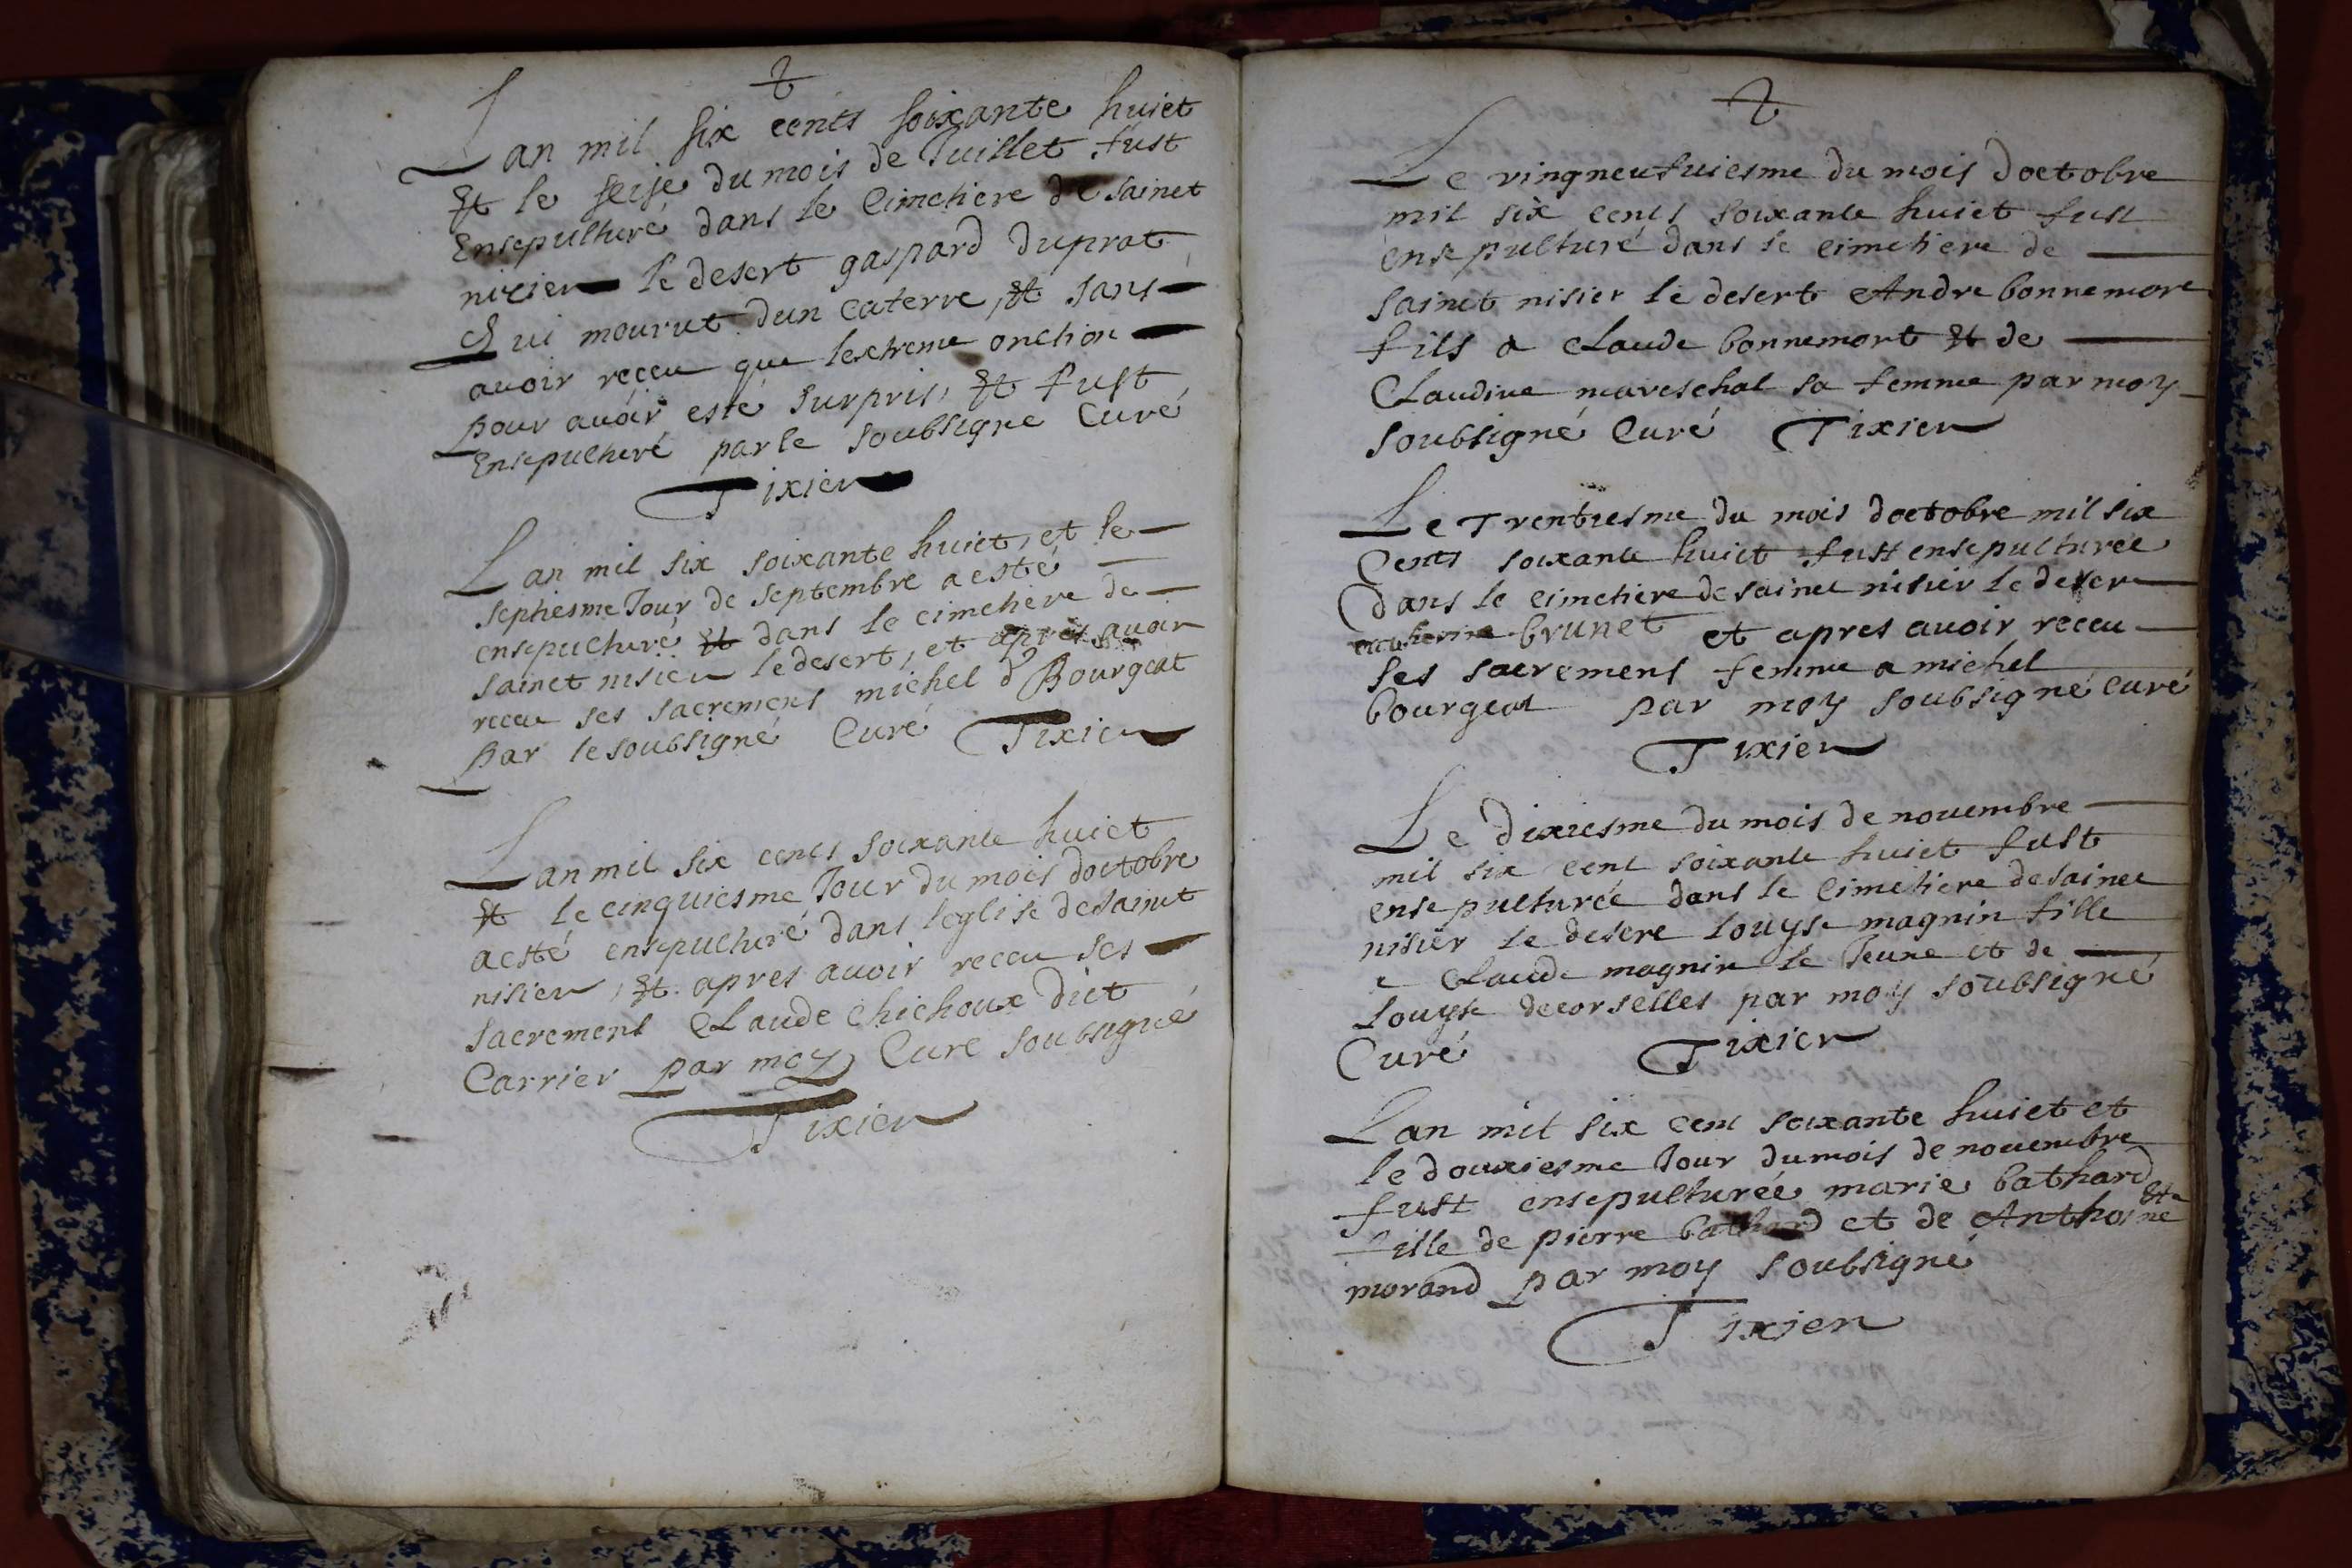 Lan mil six cents soixante huict
Et le seise du mois de Juillet fust
Ensepulturé dans le Cimetiere de sainct
nicier le desert gaspard duprat
Qui mourut dun Caterre, Et sans
avoir receu que lextreme onction
pour avoir esté surpris, Et fust
Ensepulturé par le soubsigne Curé
Tixier
Lan mil six soixante huict, et le
septiesme Jour de septembre a esté
ensepulturé Et dans le cimetiere de
sainct nisier le desert, et apres avoir
receu ses sacremens michel d Bourgeat
par le soubsigné Curé Tixier
Lan mil six cents soixante huict
Et le cinquiesme Jour du mois doctobre
a esté ensepulturé dans leglise de sainct
nisier, Et apres avoir receu ses
sacremens Claude Chichoux dict
Carrier par moy Curé soubsigné
Tixier
Le vingneufuiesme du mois doctobre
mil six cents soixante huict fust
ensepulturé dans le cimetiere de
sainct nisier le desert Andre bonnemort
fils a Claude bonnemort Et de
Claudine mareschal sa femme par moy
soubsigné Curé Tixier
Le Trentiesme du mois doctobre mil six
Cents soixante huict fust ensepulturée
dans le cimetiere de sainct nisier le desert
catherine brunet et apres avoir receu
ses sacremens femme a michel
bourgeat par moy soubsigné curé
Tixier
Le dixiesme du mois de novembre
mil six cent soixante huict fust
ensepulturée dans le Cimetiere de sainct
nisier le desert Louyse magnin fille
a Claude magnin le Jeune et de
Louyse decorselles par moy soubsigné
Curé Tixier
Lan mil six cent soixante huict et
le douxiesme Jour du mois de novembre
fust ensepulturée marie bathard
fille de pierre bathard et de Anthoinette
morand par moy soubsigné
Tixier